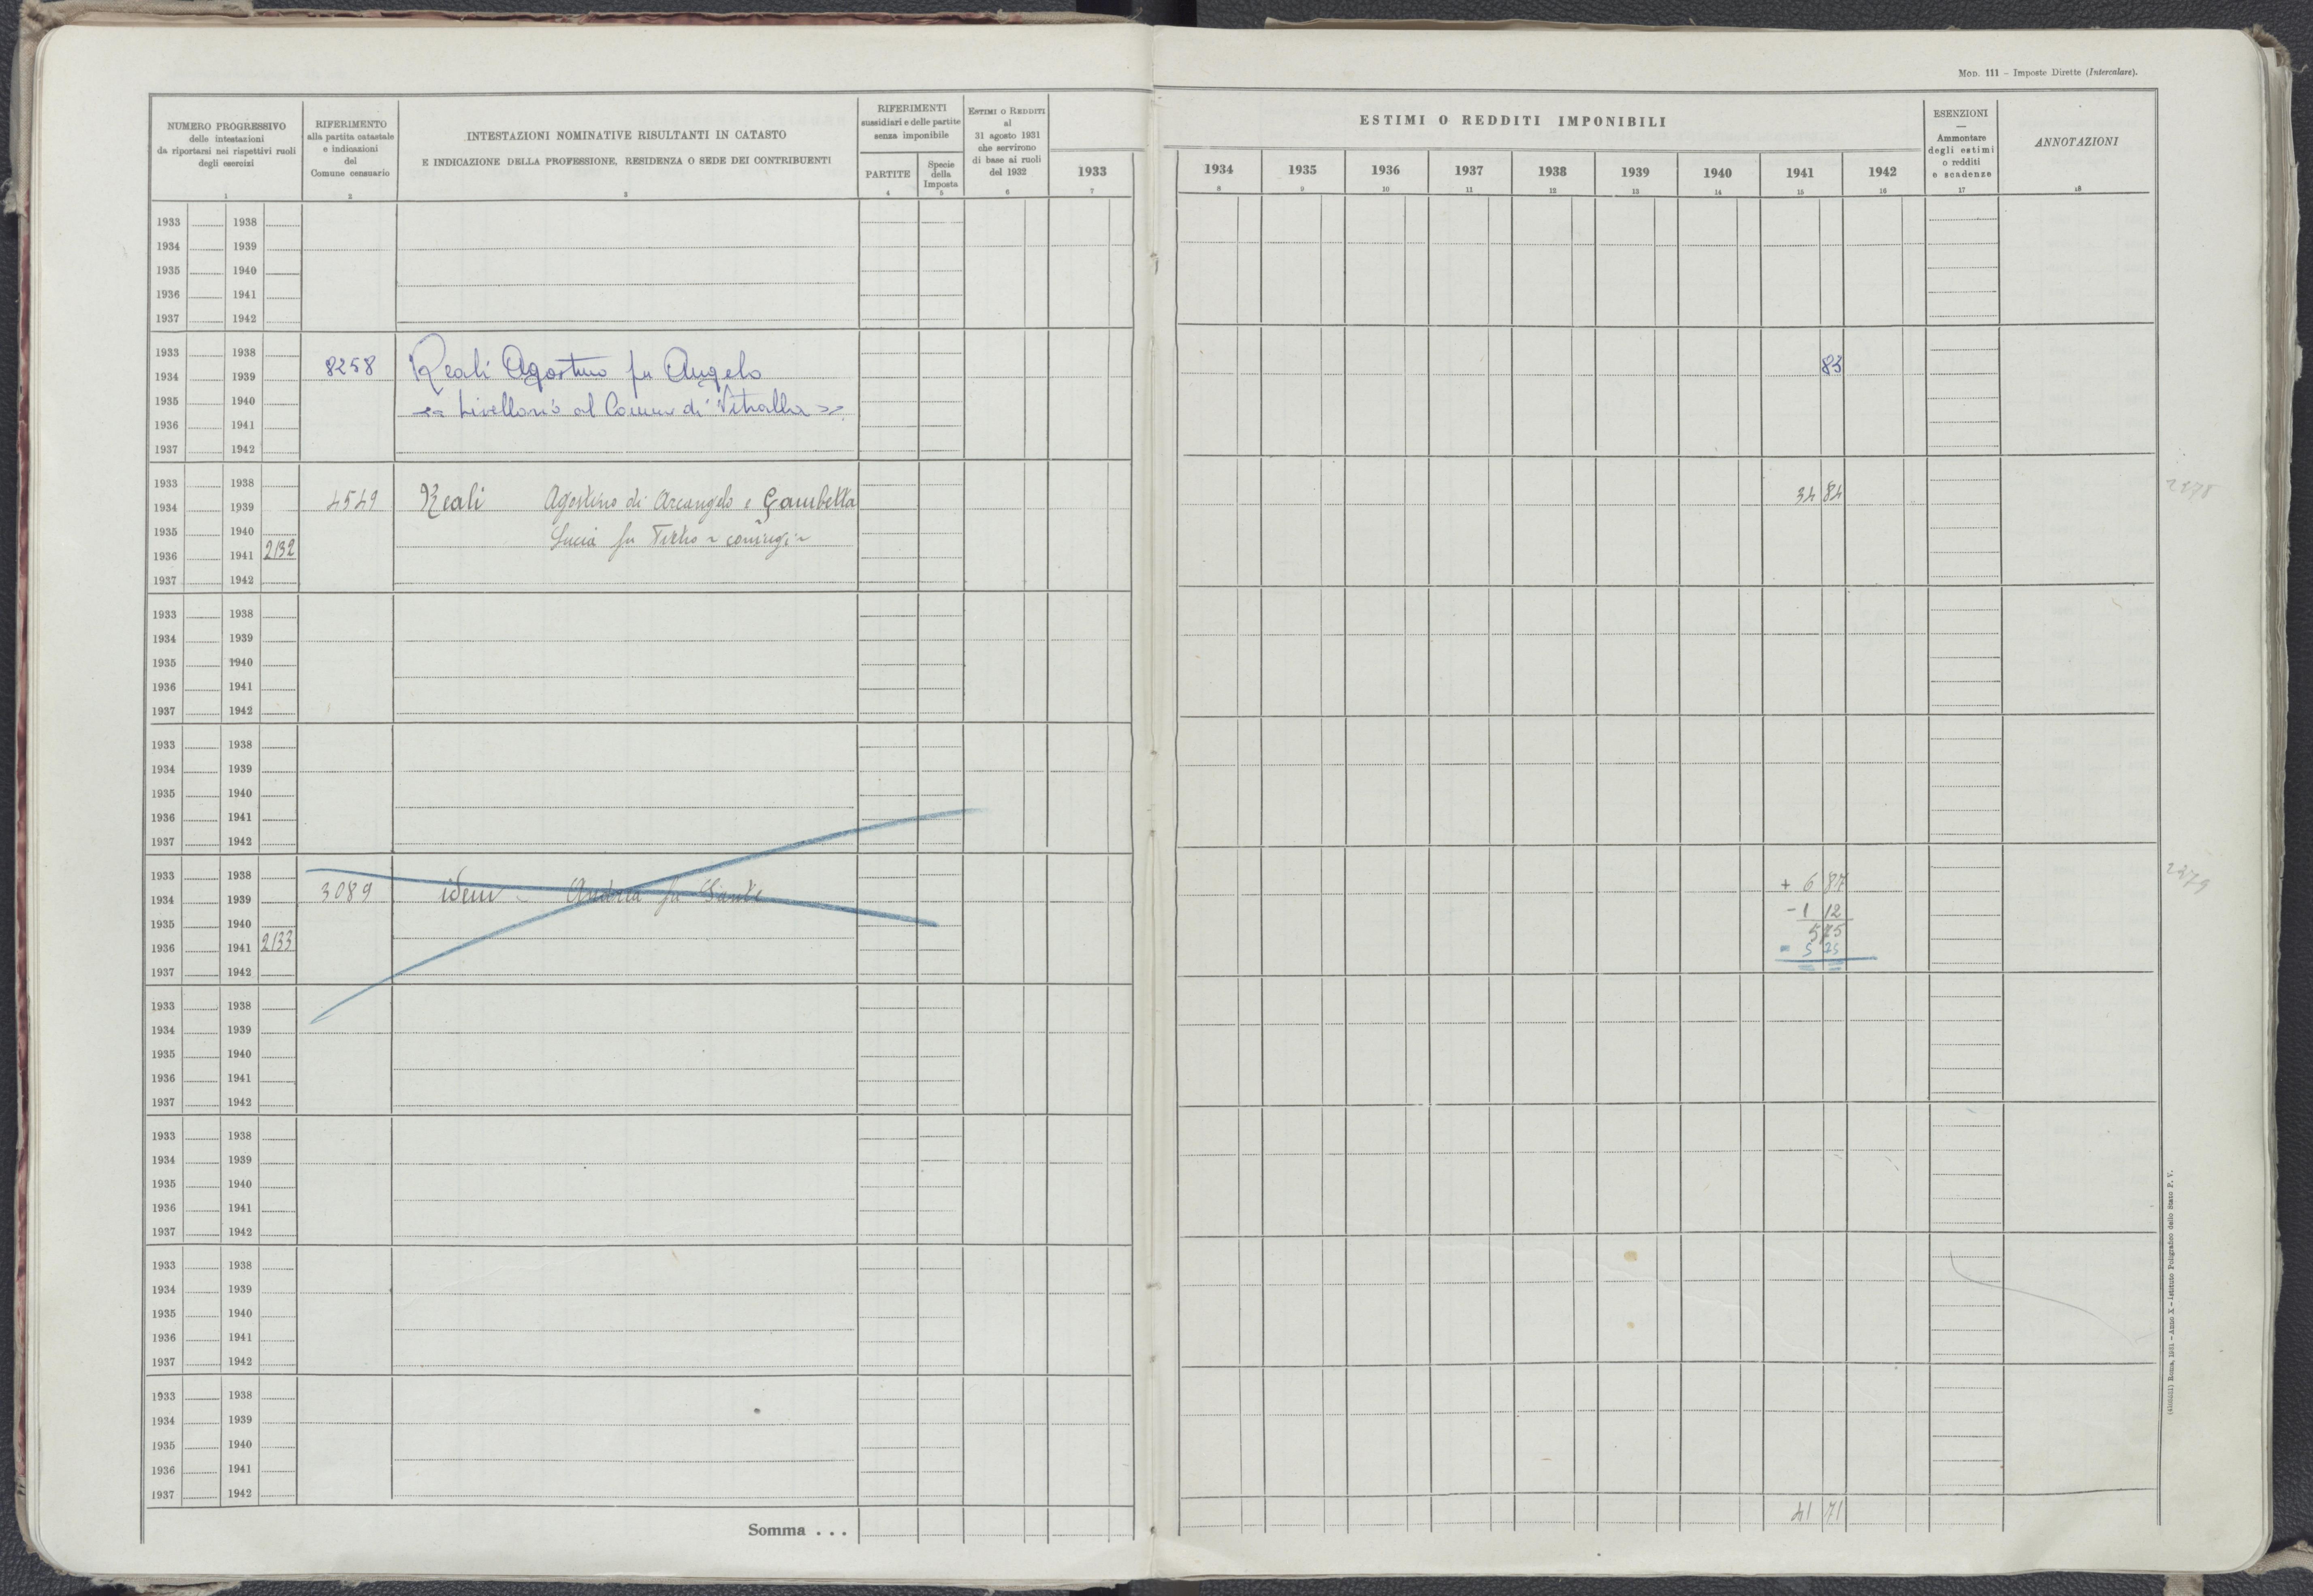 MOD. 111 – Imposte Dirette (Intercalare).
NUMERO PROGRESSIVO
delle intestazioni
da riportarsi nei rispettivi ruoli
degli esercizi
1
RIFERIMENTO
alla partita catastale
e indicazioni
del
Comune censuario
2
INTESTAZIONI NOMINATIVE RISULTANTI IN CATASTO
E INDICAZIONE DELLA PROFESSIONE, RESIDENZA O SEDE DEI CONTRIBUENTI
3
RIFERIMENTI
sussidiari e delle partite
senza imponibile
PARTITE
4
Specie
della
Imposta
5
ESTIMI O REDDITI
al
31 agosto 1931
che servirono
di base ai ruoli
del 1932
6
ESTIMI O REDDITI IMPONIBILI
1933 1934 1935 1936 1937 1938 1939 1940 1941 1942
7 8 9 10 11 12 13 14 15 16
ESENZIONI
—
Ammontare
degli estimi
o redditi
e scadenze
17
ANNOTAZIONI
18
1933 1938
1934 1939
1935 1940
1936 1941
1937 1942
1933 1938
1934 1939 8258 Reali Agostino fu Angelo 83
1935 1940 « Livellario al Comune di Vetralla »
1936 1941
1937 1942
1933 1938
1934 1939 4549 Reali Agostino di Arcangelo e Gambetta 34 84
1935 1940 Lucia fu Tito ~ coniugi ~
1936 1941 2132
1937 1942
2278
1933 1938
1934 1939
1935 1940
1936 1941
1937 1942
1933 1938
1934 1939
1935 1940
1936 1941
1937 1942
1933 1938 + 6 87
1934 1939 3089 idem - Andrea fu Sante - 1 12
1935 1940 5 75
1936 1941 2133 - 5 75
1937 1942
2279
1933 1938
1934 1939
1935 1940
1936 1941
1937 1942
1933 1938
1934 1939
1935 1940
1936 1941
1937 1942
1933 1938
1934 1939
1935 1940
1936 1941
1937 1942
1933 1938
1934 1939
1935 1940
1936 1941
1937 1942
Somma . . . 41 71
Roma, 1931 – Anno X – Istituto Poligrafico dello Stato P. V.